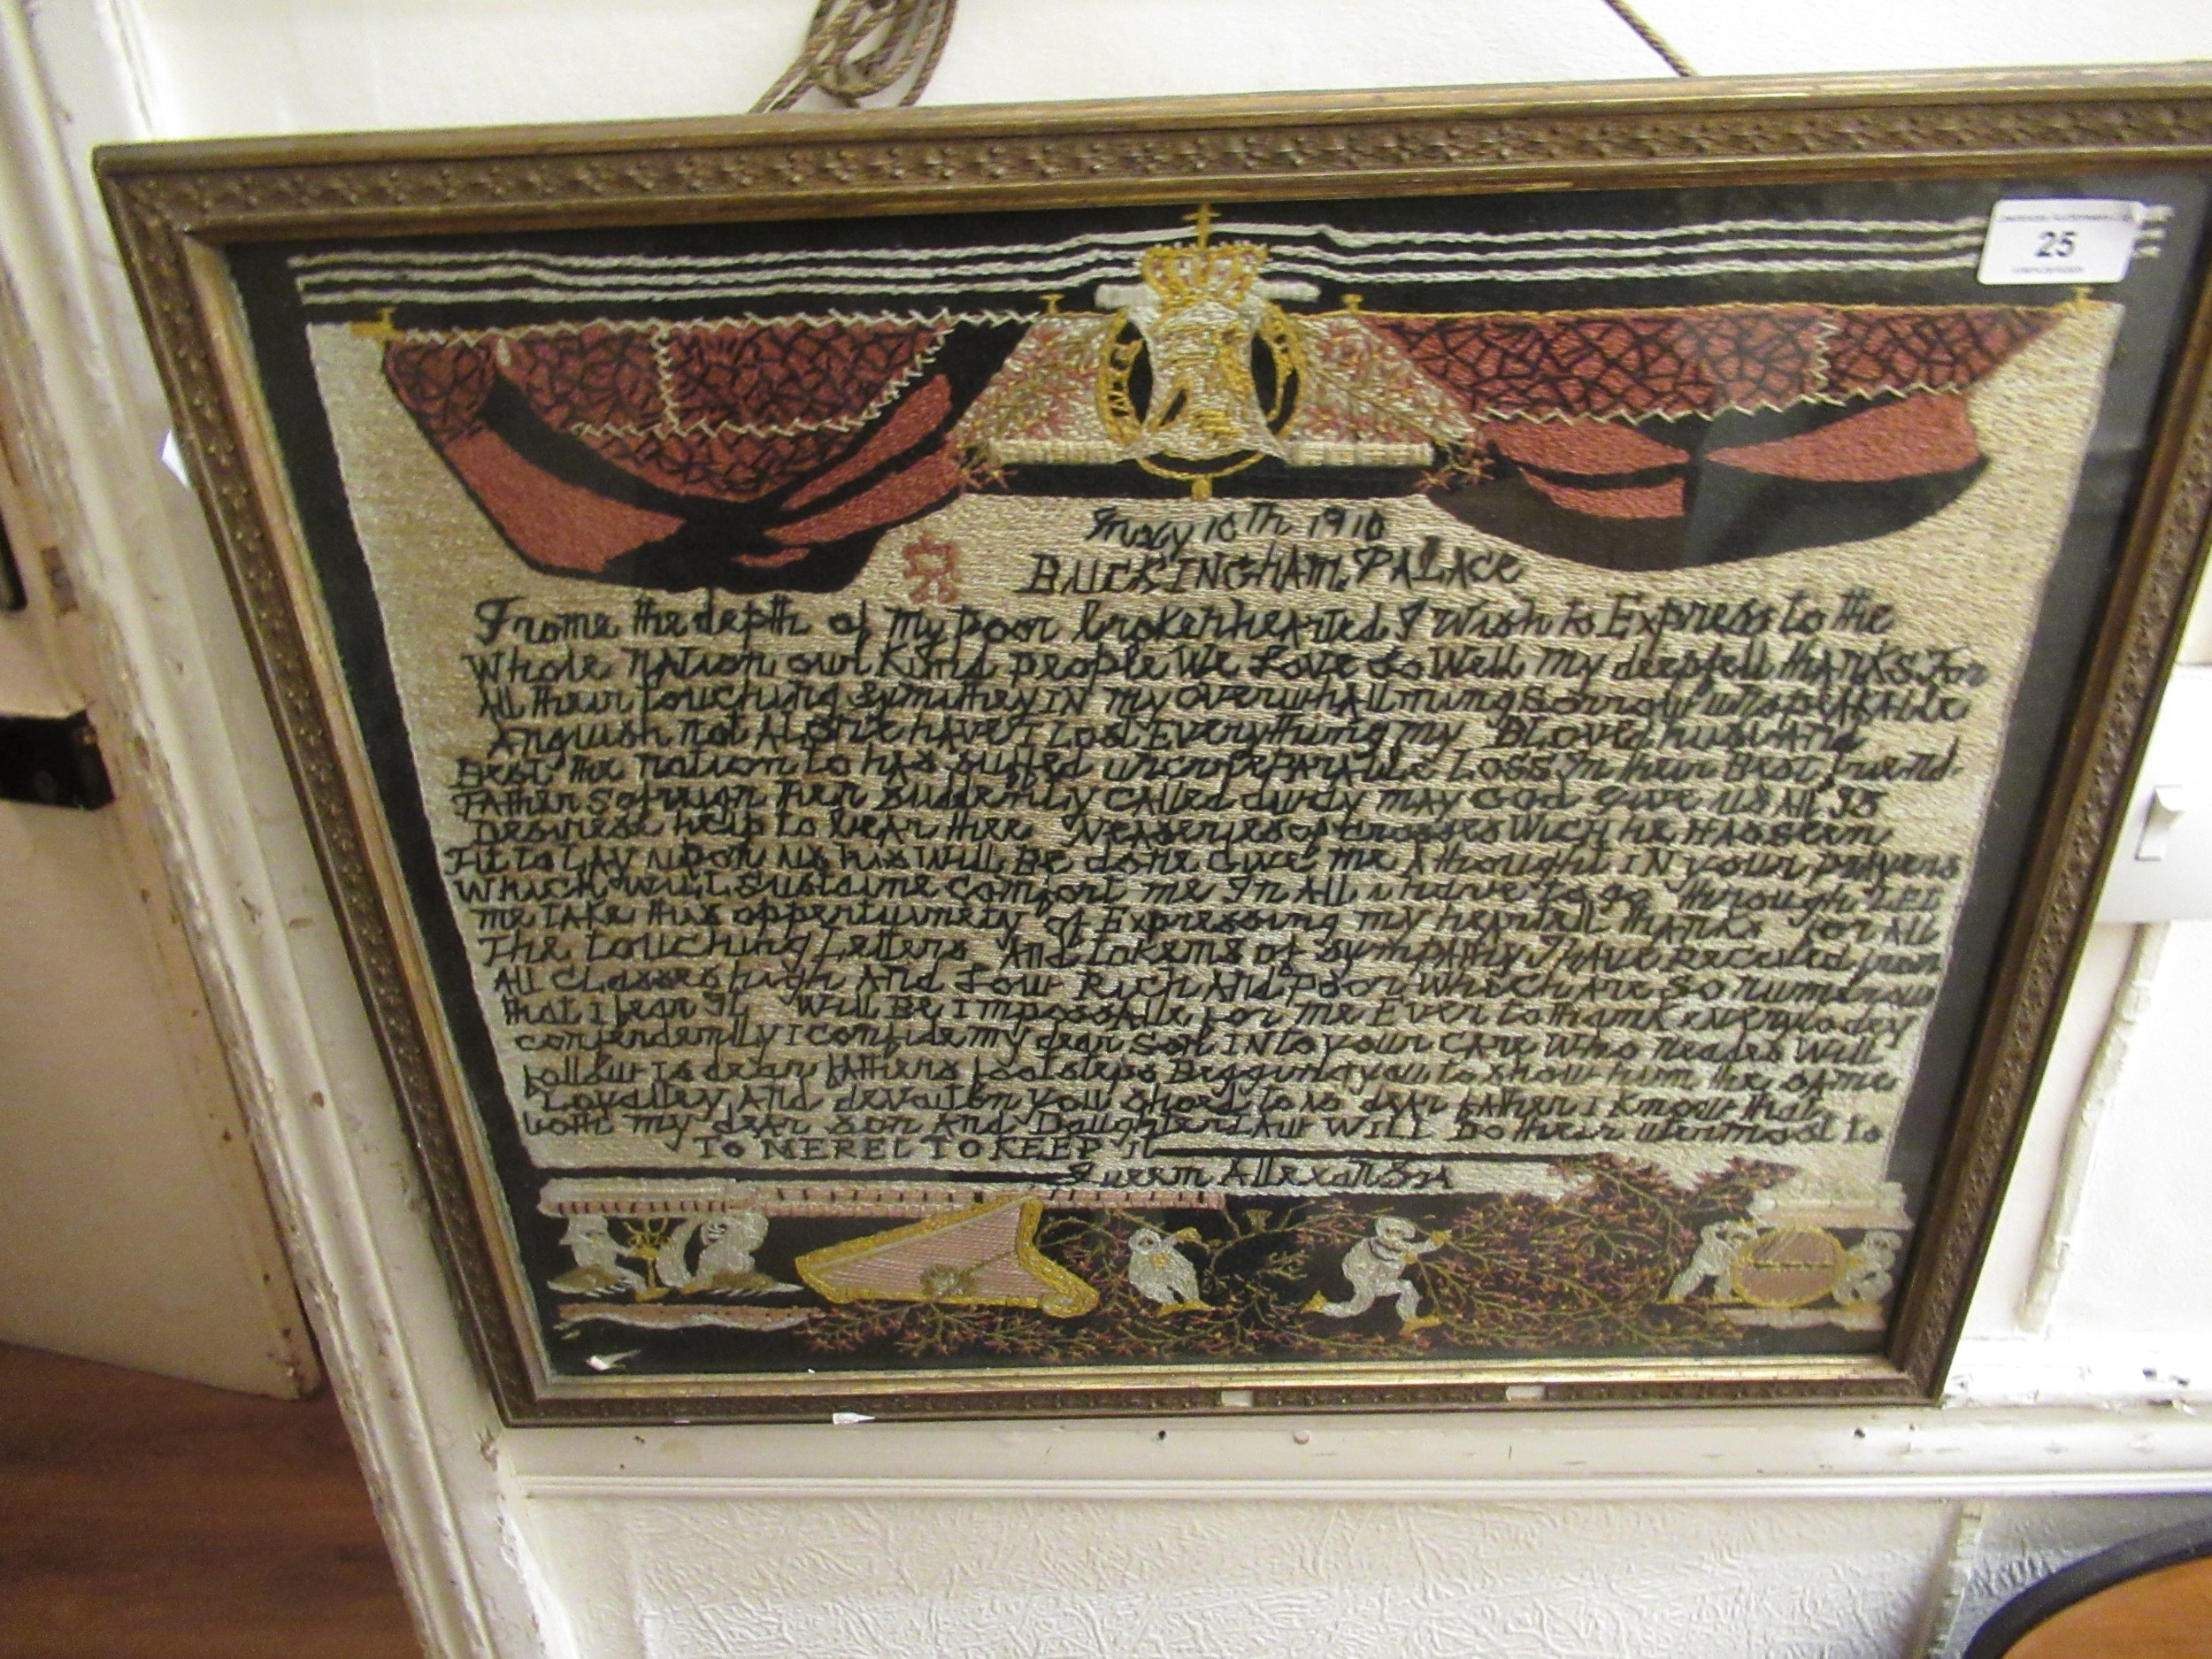 25
May 10Th 1910
BUCKINGHAM. PALACE
Frome the depth of My Poor brokenhearted I Wish to Express to the
Whole NATION our Kind people We Love So Well My deepfell thANKS For
All their touching Symithey IN my overwhAllming Sorrow unspeakable
Anguish not ALONE have I Lost Everything my BLoved husbAND
Best the nation to has suffed Loss In their Best friend
FATher then Suddernly CALLed may GOD give us All
help to beAr of crosses Which he HAS seen
Fit to LAY upon us his WiLL Be done Give me A thought IN your prAyers
Which WiLL Sustaine comfort me In All i have to go through LET
me TAKE this oppertunnety of Expressing my heartfell thanks for All
The touching Letters And tokens of Sympathy I have Received from
All CLASSes high AND Low Rich AND Poor Which ARE So numerous
that I fear It Will BE Impossable for me Ever to thank everybodey
I confide my dear Son INto Your CARE Who Will
follow is dear fAthers footsteps Begging you to show him the same
Loyalley And devation you shoed to is deAr fAther I Know that
both my deAr Son AND DaughterLaw WiLL Do their to
TO MEREL TO KEEP it
Queem Allexandra